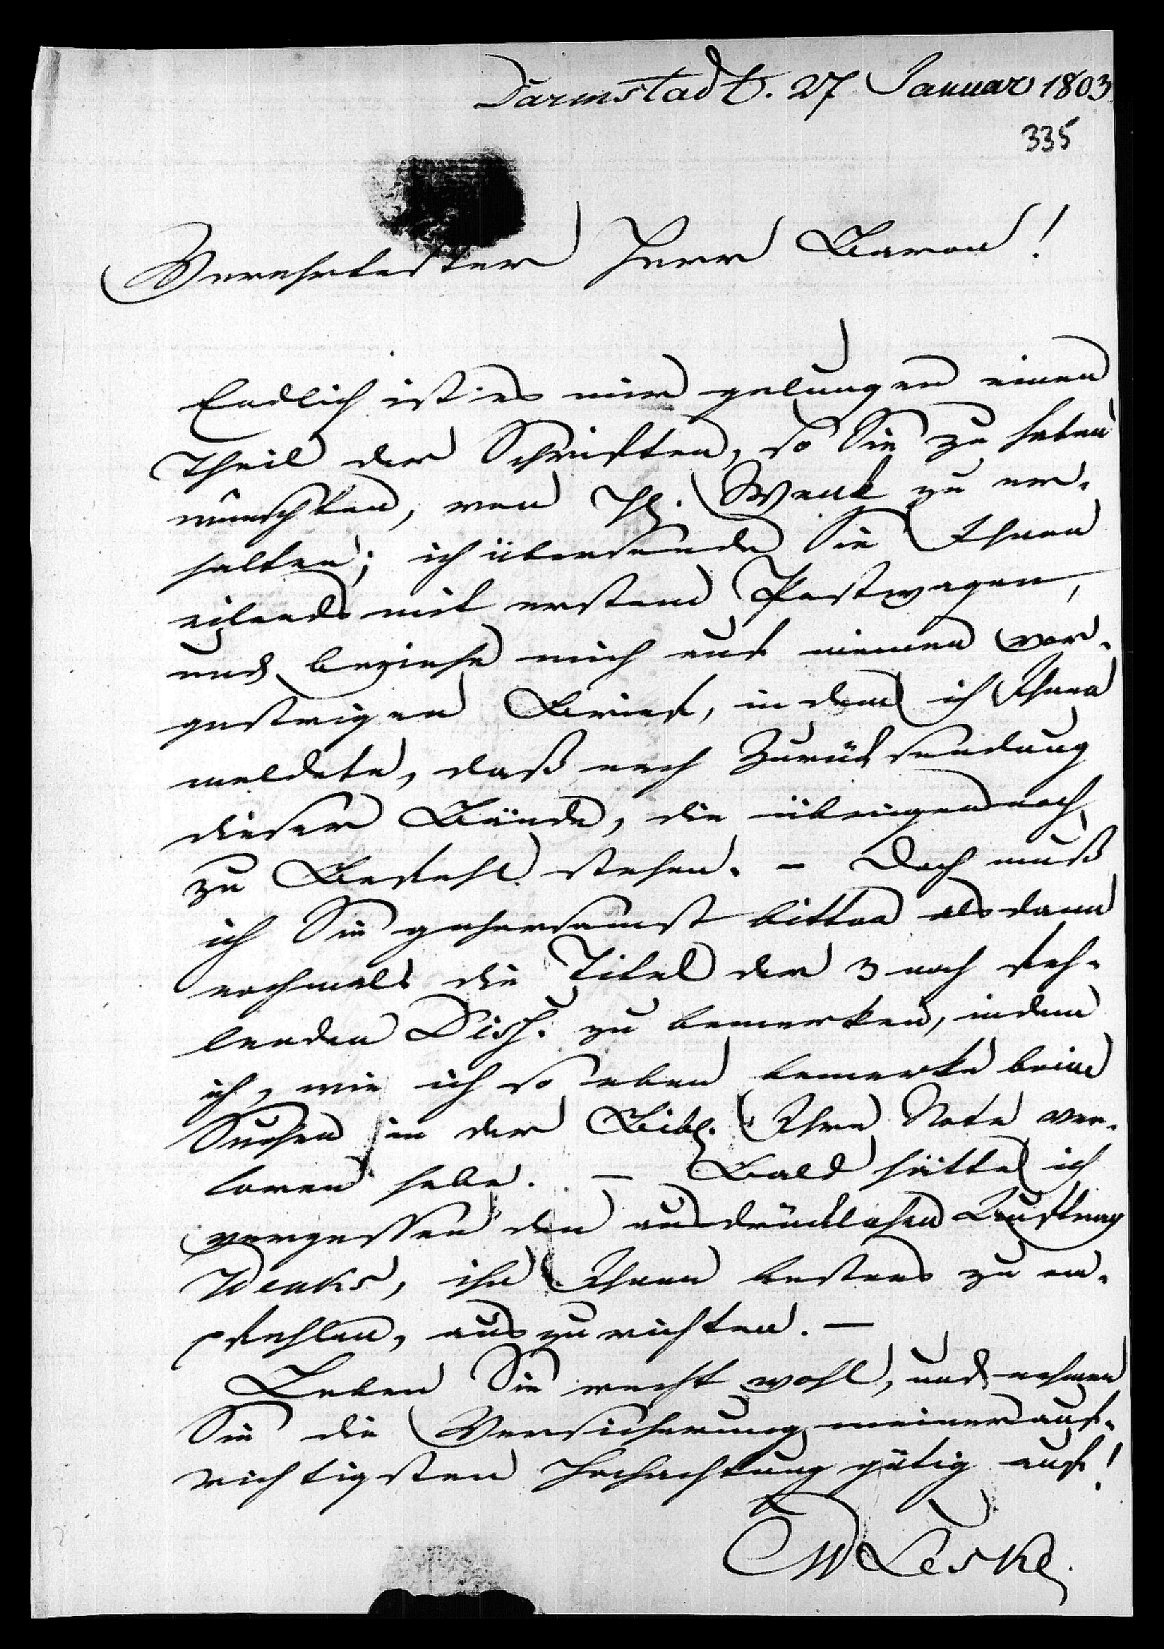 Darmstadt. 27 Januar 1803
335
Verehrtester Herr Baron!
Endlich ist es mir gelungen einen
Theil der Schriften, so Sie zu haben
wünschten, von H. Wenk zu er-
halten; ich übersende Sie Ihnen
eilends mit erstem Postwagen,
und beziehe mich auf meinen vor-
gestrigen Brief, in dem ich Ihnen
meldete, daß nach Zurücksendung
dieser Bände, die übrigen noch
zu Befehl stehen. – Doch muß
ich Sie gehorsamst bitten alsdann
nochmals die Titel der 3 noch feh-
lenden Diss. zu bemerken, indem
ich, wie ich so eben bemerke beim
Suchen in der Bibl. Ihre Note ver-
loren habe. – Bald hätte ich
vergessen den ausdrücklichen Auftrag
Wenks, ihn Ihnen bestens zu em-
pfehlen, auszurichten. –
Leben Sie recht wohl, und nehmen
Sie die Versicherung meiner auf-
richtigsten Hochachtung gütig auf!
CWLeske